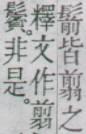 鬋皆翦之
釋文作翦
鬢。非是。